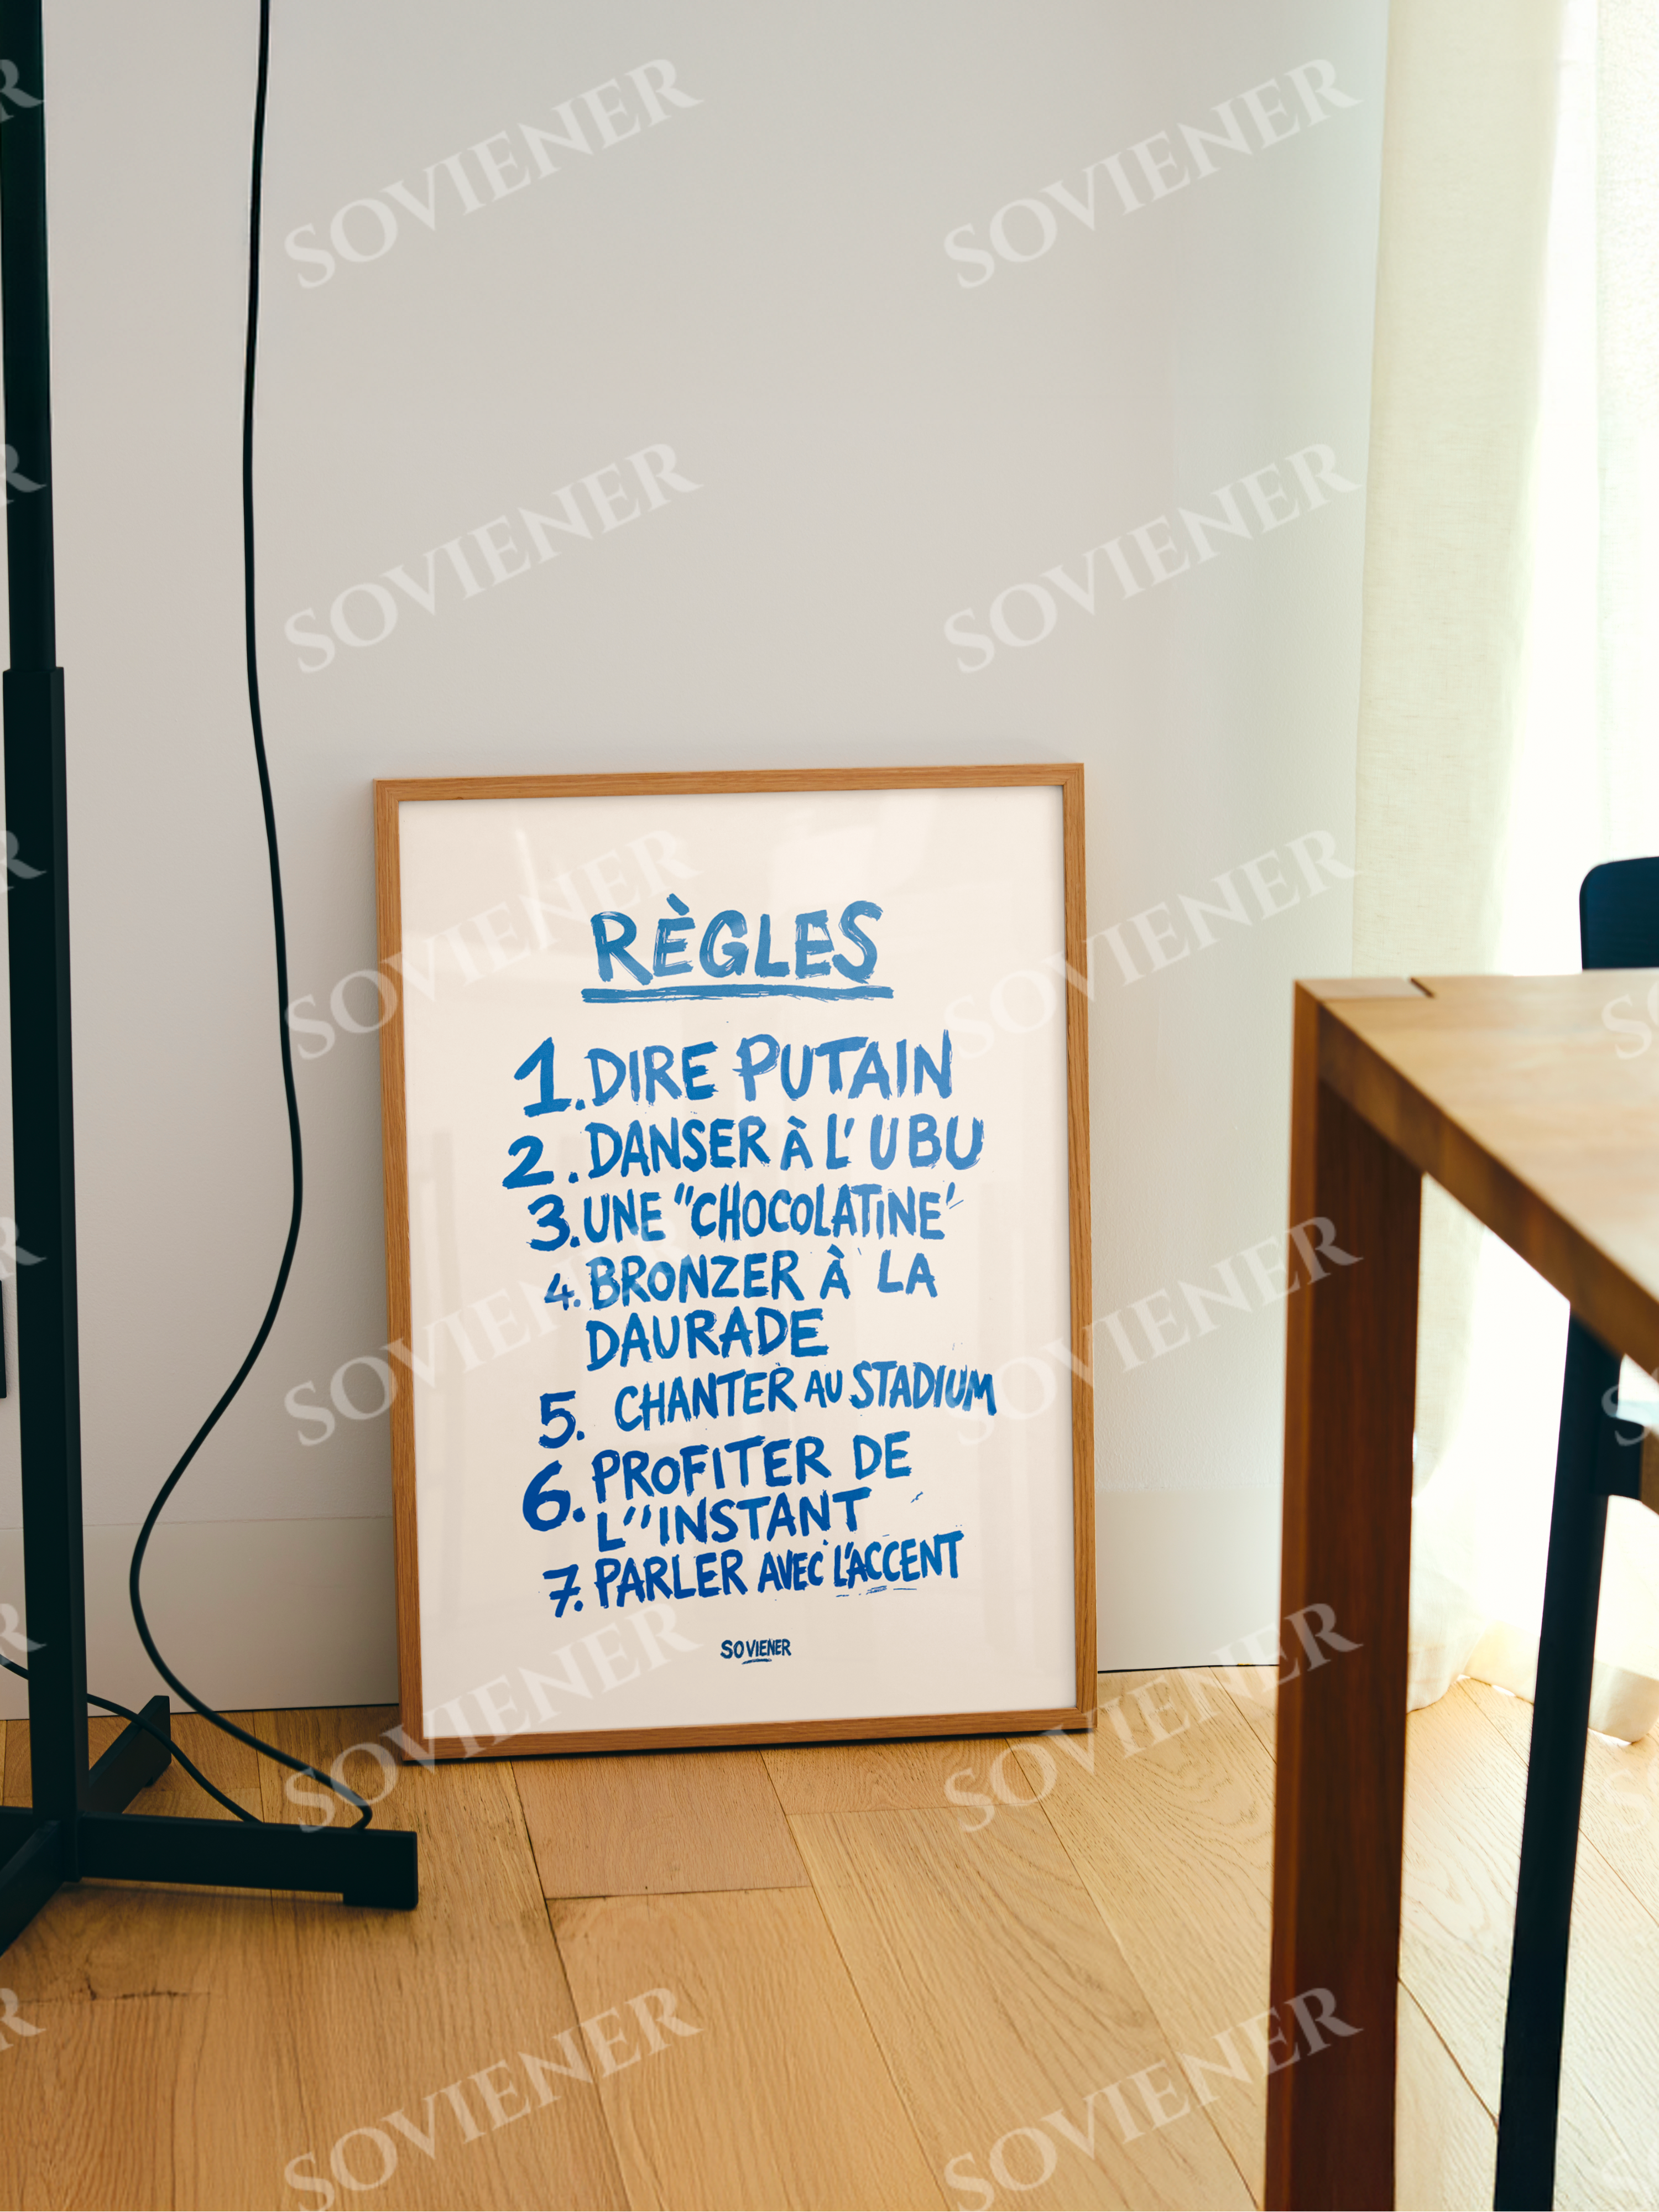 RÈGLES
1. DIRE PUTAIN
2. DANSER À L' UBU
3. UNE "CHOCOLATINE"
4. BRONZER À LA
DAURADE
5. CHANTER AU STADIUM
6. PROFITER DE
L''INSTANT
7. PARLER AVEC L'ACCENT
SOVIENER
SOVIENER
SOVIENER
SOVIENER
SOVIENER
SOVIENER
SOVIENER
SOVIENER
SOVIENER
SOVIENER
SOVIENER
SOVIENER
SOVIENER